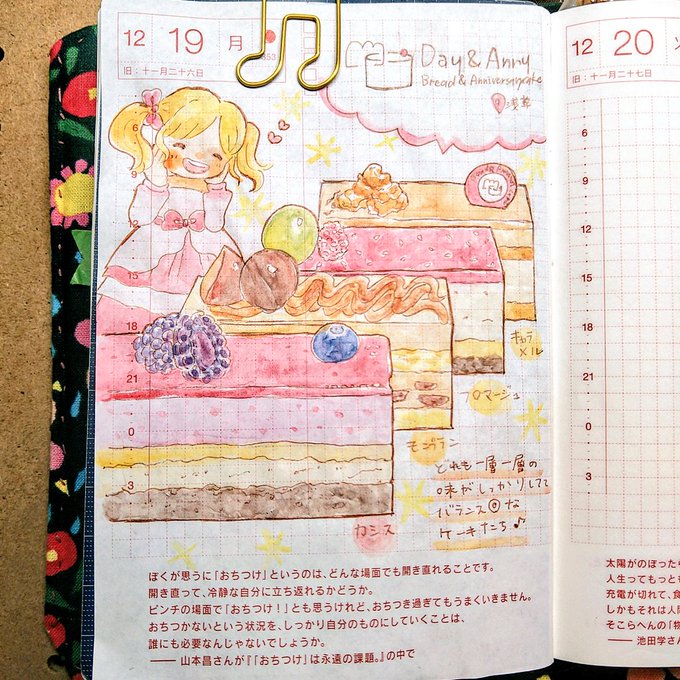 12 19 月
旧：十一月二十六日
353
Day & Anny
Bread & Anniversarycake
浅草
6
9
12
15
18
21
0
3
キャラメル
フロマージュ
モンブラン
カシス
どれも一層一層の
味がしっかりしてて
バランス◎な
ケーキたち♪
ぼくが思うに「おちつけ」というのは、どんな場面でも開き直れることです。
開き直って、冷静な自分に立ち返れるかどうか。
ピンチの場面で「おちつけ！」とも思うけれど、おちつき過ぎてもうまくいきません。
おちつかないという状況を、しっかり自分のものにしていくことは、
誰にも必要なんじゃないでしょうか。
―― 山本昌さんが『「おちつけ」は永遠の課題。』の中で
12 20
旧：十一月二十七日
6
9
12
15
18
21
0
3
太陽がのぼった
人生ってもっと
充電が切れて、食
しかもそれは人間
そこらへんの「物
―― 池田学さん